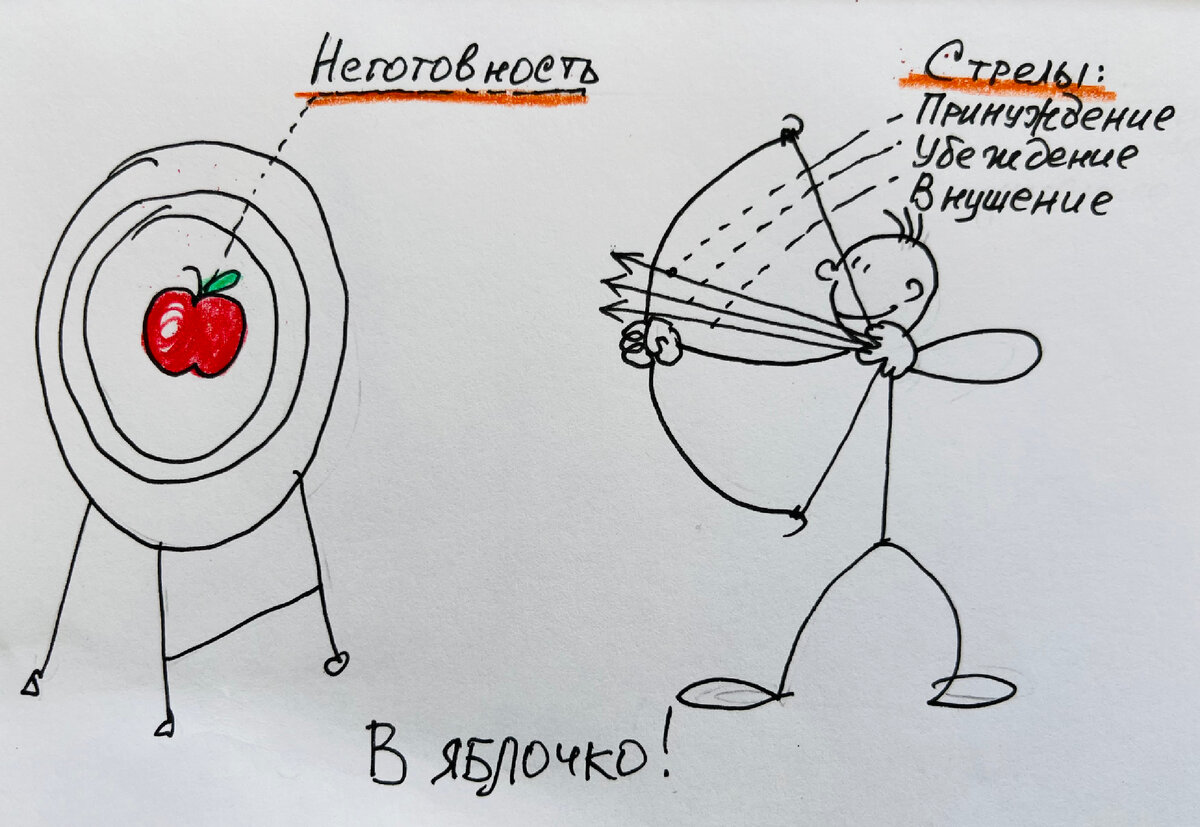 Неготовность
Стрелы:
Принуждение
Убеждение
Внушение
В яблочко!